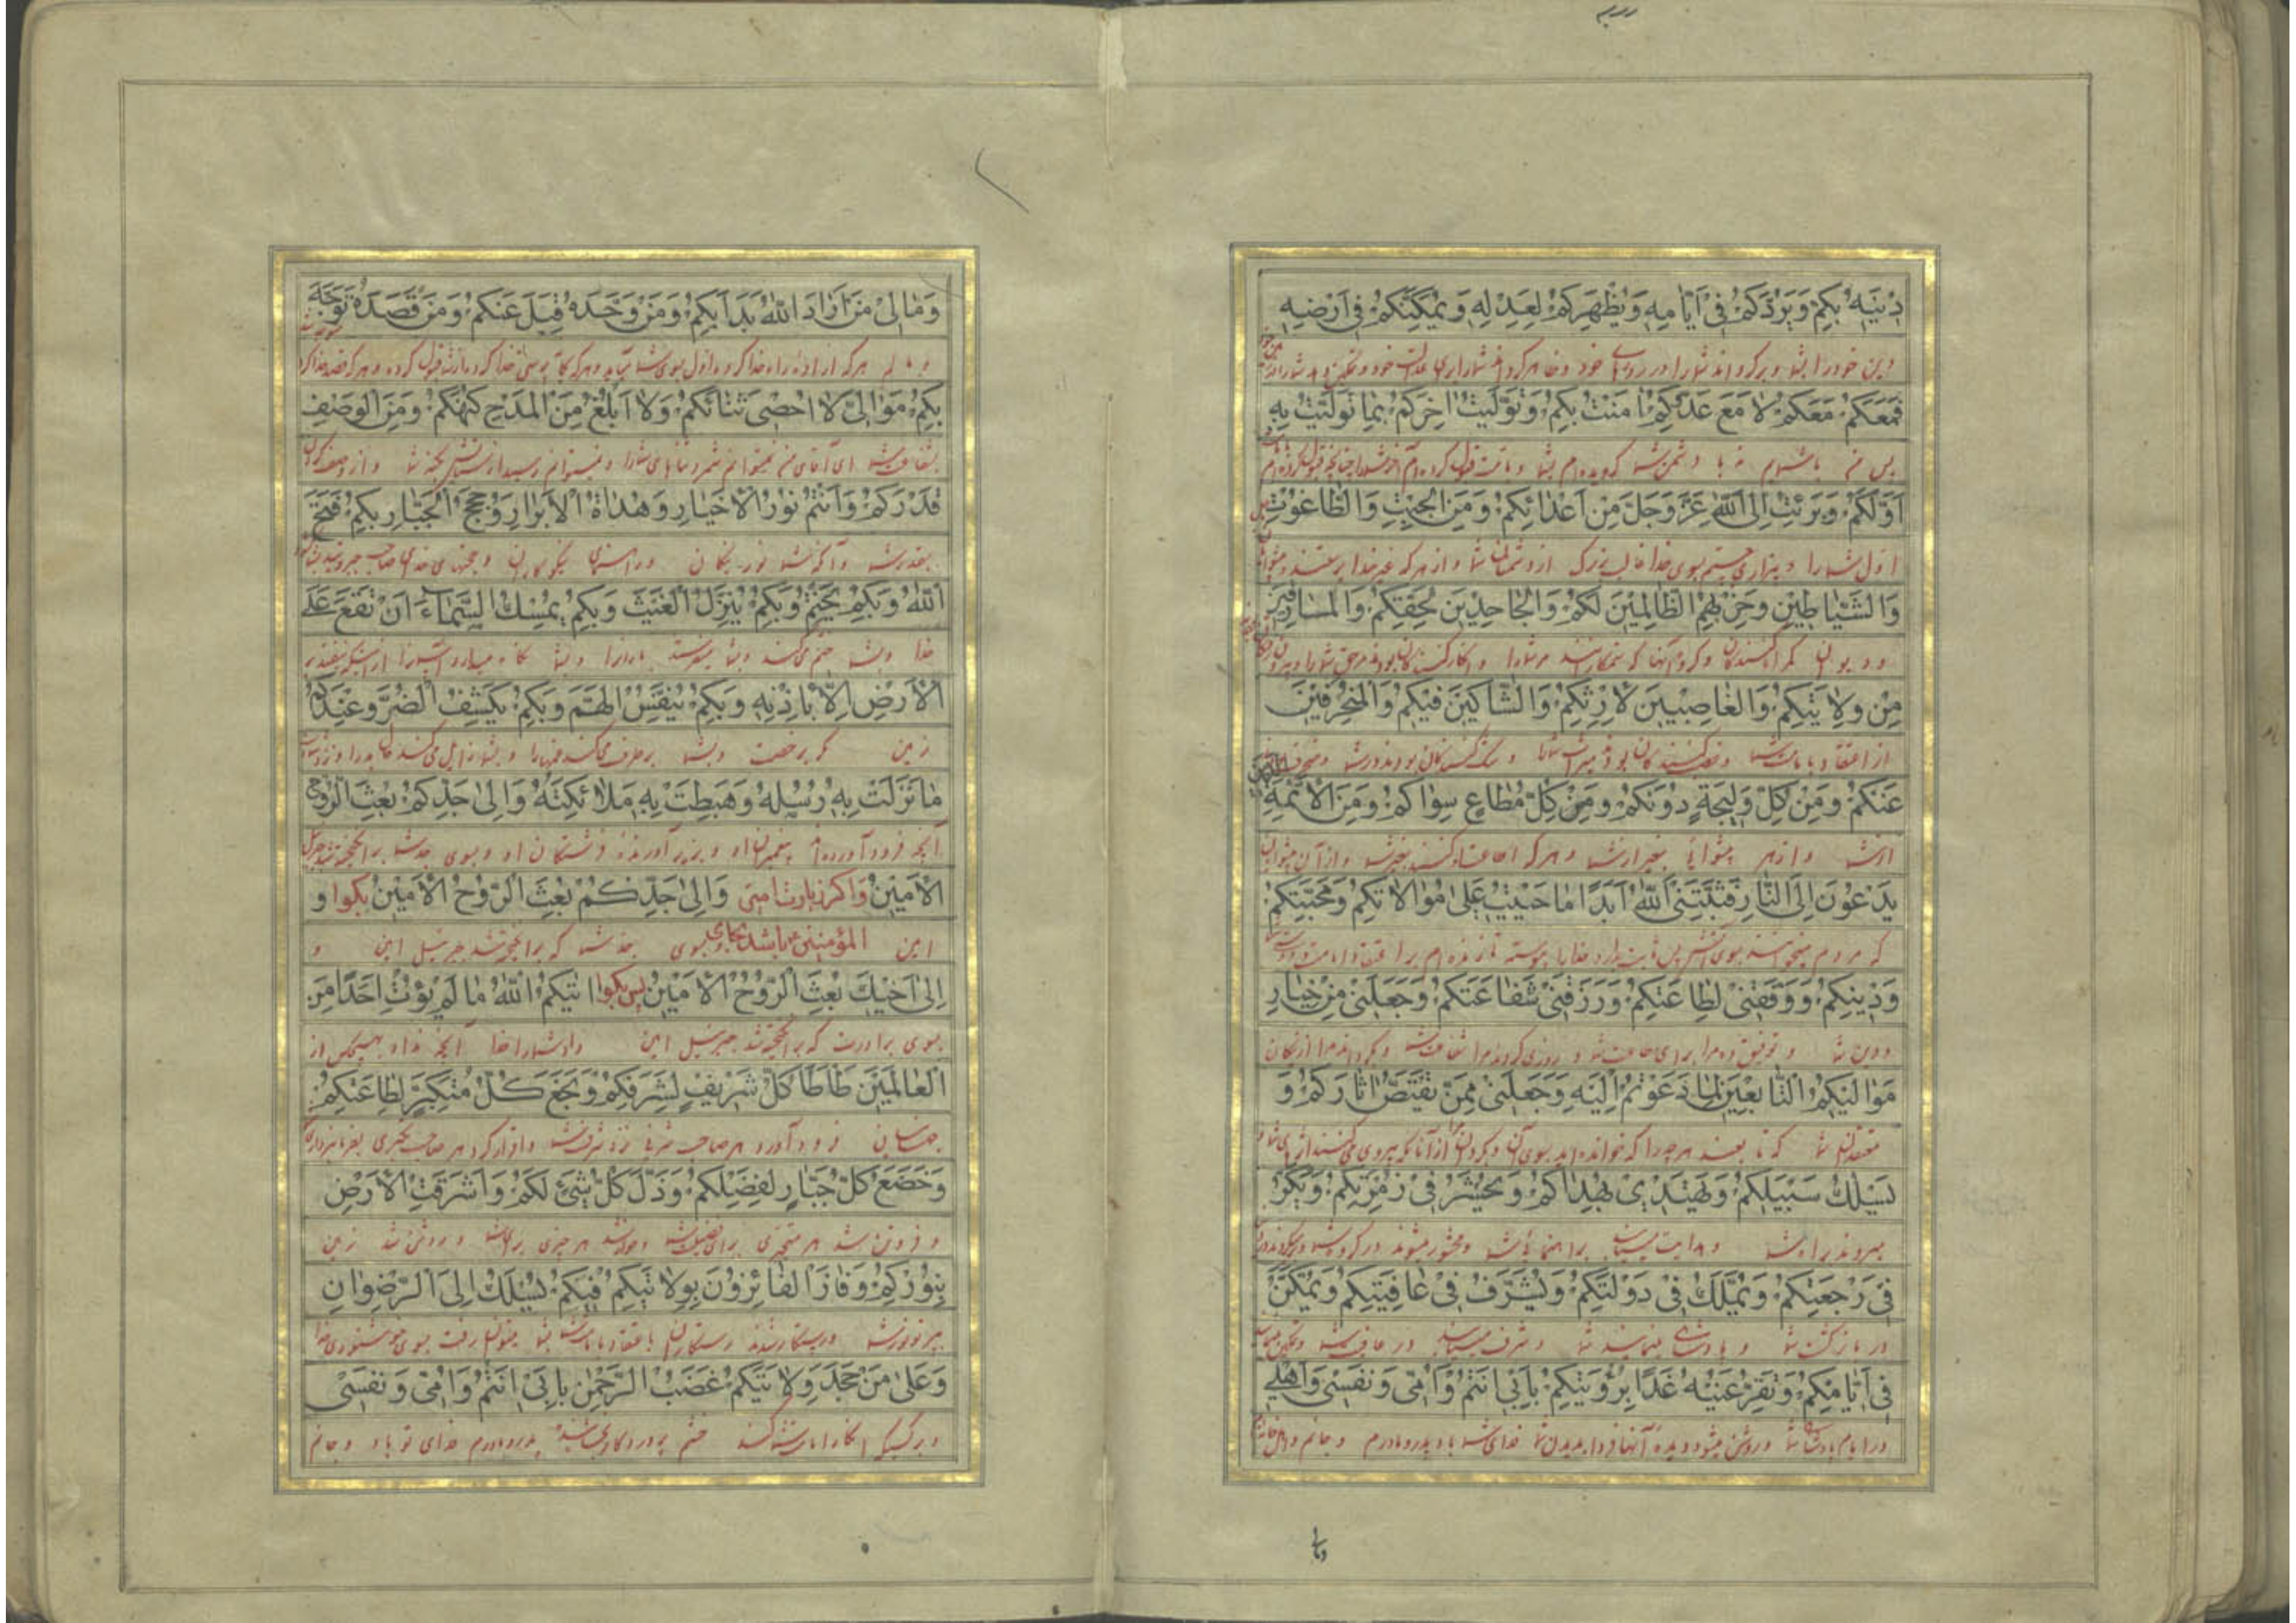 دِينَهُ بِكُمْ وَيَرُدَّكُمْ فِي أَيَّامِهِ وَيُظْهِرَكُمْ لِعَدْلِهِ وَيُمَكِّنَكُمْ فِي أَرْضِهِ
دین خود را بشما و برگرداند شما را در روزهای خود و ظاهر کرداند شما را برای عدالت خود و تمکین دهد شما را در
فَمَعَكُمْ مَعَكُمْ لَا مَعَ عَدُوِّكُمْ اٰمَنْتُ بِكُمْ وَتَوَلَّيْتُ اٰخِرَكُمْ بِمَا تَوَلَّيْتُ بِهِ
پس با شمایم نه با دشمن شما گرویده‌ام بشما
أَوَّلَكُمْ وَبَرِئْتُ إِلَى اللّٰهِ عَزَّ وَجَلَّ مِنْ أَعْدَائِكُمْ وَمِنَ الْجِبْتِ وَالطَّاغُوتِ
اول شما را و بیزاری جستم بسوی خدا غالب بزرک از دشمنان شما و از هر که غیر خدا
وَالشَّيَاطِينِ وَحِزْبِهِمُ الظَّالِمِينَ لَكُمْ وَالْجَاحِدِينَ لِحَقِّكُمْ وَالْمَارِقِينَ
و دیوان گمراه کنندگان و گروه آنها که ستمکارانند مر شما را و انکار کنندگان بودند مر حق شما را
مِنْ وِلَايَتِكُمْ وَالْغَاصِبِينَ لِإِرْثِكُمْ وَالشَّاكِّينَ فِيكُمْ وَالْمُنْحَرِفِينَ
از اعتقاد بامامت شما و غصب کنندگان بودند میراث شما و شک کنندگان بودند در شما
عَنْكُمْ وَمِنْ كُلِّ وَلِيجَةٍ دُونَكُمْ وَمِنْ كُلِّ مُطَاعٍ سِوَاكُمْ وَمِنَ الْأَئِمَّةِ الَّذِينَ
از شما و از هر پیشوائی بغیر از شما و هر که اطاعت او کنند بغیر شما و از آن پیشوایان
يَدْعُونَ إِلَى النَّارِ فَثَبَّتَنِيَ اللّٰهُ أَبَدًا مَا حَيِيتُ عَلَى مُوَالَاتِكُمْ وَمَحَبَّتِكُمْ
که مردم میخوانند بسوی آتش پس ثابت دارد خدا مرا پیوسته تا زنده‌ام بر اعتقاد امامت
وَدِينِكُمْ وَوَفَّقَنِي لِطَاعَتِكُمْ وَرَزَقَنِي شَفَاعَتَكُمْ وَجَعَلَنِي مِنْ خِيَارِ
و دین شما و توفیق دهد مرا برای طاعت شما و روزی کرداند مرا شفاعت شما و بکرداند مرا از نیکان
مَوَالِيكُمُ التَّابِعِينَ لِمَا دَعَوْتُمْ إِلَيْهِ وَجَعَلَنِي مِمَّنْ يَقْتَصُّ اٰثَارَكُمْ وَ
معتقدان شما که تابعند هر چه را که خوانده‌اید بسوی آن و بکرداند مرا از آنانکه پیروی می‌کنند
يَسْلُكُ سَبِيلَكُمْ وَيَهْتَدِي بِهُدَاكُمْ وَيُحْشَرُ فِي زُمْرَتِكُمْ وَيَكُرُّ
میروند براه شما و هدایت مییابند براهنمائی شما و محشور میشوند در گروه شما
فِي رَجْعَتِكُمْ وَيُمَلَّكُ فِي دَوْلَتِكُمْ وَيُشَرَّفُ فِي عَافِيَتِكُمْ وَيُمَكَّنُ
در بازگشتن شما و پادشاهی مینمایند شما و مشرف میشوند در عافیت شما
فِي أَيَّامِكُمْ وَتَقَرُّ عَيْنُهُ غَدًا بِرُؤْيَتِكُمْ بِأَبِي أَنْتُمْ وَأُمِّي وَنَفْسِي وَأَهْلِي
در ایام پادشاهی شما و روشن میشود دیده آنها فردا بدیدن شما فدای شما باد پدر و مادرم و جانم و اهل
ومالی
وَمَالِي مَنْ أَرَادَ اللّٰهَ بَدَأَ بِكُمْ وَمَنْ وَحَّدَهُ قَبِلَ عَنْكُمْ وَمَنْ قَصَدَهُ تَوَجَّهَ
و مالم هر که اراده خدا کرده اول بسوی شما
بِكُمْ مَوَالِيَّ لَا أُحْصِي ثَنَائَكُمْ وَلَا أَبْلُغُ مِنَ الْمَدْحِ كُنْهَكُمْ وَمِنَ الْوَصْفِ
ای آقای من نمیتوانم شمرد ثناهای شما را و نمیتوانم رسید از ستایش بکنه شما و از وصف
قَدْرَكُمْ وَأَنْتُمْ نُورُ الْأَخْيَارِ وَهُدَاةُ الْأَبْرَارِ وَحُجَجُ الْجَبَّارِ بِكُمْ فَتَحَ
بقدر شما و آنکه شما نور نیکان و راهنمای نیکوکاران و حجتهای خدای صاحب جبروتید
اللّٰهُ وَبِكُمْ يَخْتِمُ وَبِكُمْ يُنَزِّلُ الْغَيْثَ وَبِكُمْ يُمْسِكُ السَّمَاءَ أَنْ تَقَعَ عَلَى
خدا و بشما ختم می‌کند و بشما میفرستد باران را و بشما نگاه میدارد آسمان را از اینکه بیفتد بر
الْأَرْضِ إِلَّا بِإِذْنِهِ وَبِكُمْ يُنَفِّسُ الْهَمَّ وَبِكُمْ يَكْشِفُ الضُّرَّ وَعِنْدَكُمْ
زمین مگر برخصت و بشما برطرف میکند غمها را و بشما زایل می‌کند
مَا نَزَلَتْ بِهِ رُسُلُهُ وَهَبَطَتْ بِهِ مَلَائِكَتُهُ وَإِلَى جَدِّكُمْ بُعِثَ الرُّوحُ
آنچه فرود آورده‌اند پیغمبران او و بزیر آورندند فرشتگان او و بسوی جد شما برانگیخته شد جبرئیل
الْأَمِينُ وَاكر زیارت امیر وَإِلَى جَدِّكُمْ بُعِثَ الرُّوحُ الْأَمِينُ بگوا و
امین المؤمنین ع باشد بجای بسوی جد شما که برانگیخته شد جبرئیل امین و
إِلَى أَخِيكَ بُعِثَ الرُّوحُ الْأَمِينُ پس بگوا اٰتَيكُمُ اللّٰهُ مَا لَمْ يُؤْتِ أَحَدًا مِنَ
بسوی برادرت که برانگیخته شد جبرئیل امین داد شما را خدا آنچه نداد بهیچکس از
الْعَالَمِينَ طَأْطَأَ كُلُّ شَرِيفٍ لِشَرَفِكُمْ وَبَخَعَ كُلُّ مُتَكَبِّرٍ لِطَاعَتِكُمْ
جهانیان فرود آورد هر صاحب شرفی نزد شرف شما و اقرار کرد هر صاحب تکبری بفرمانبرداری
وَخَضَعَ كُلُّ جَبَّارٍ لِفَضْلِكُمْ وَذَلَّ كُلُّ شَيْءٍ لَكُمْ وَأَشْرَقَتِ الْأَرْضُ
و فروتن شد هر متجبری برای فضیلت شما و خوار شد هر چیزی برای شما و روشن شد زمین
بِنُورِكُمْ وَفَازَ الْفَائِزُونَ بِوِلَايَتِكُمْ فَبِكُمْ يُسْلَكُ إِلَى الرِّضْوَانِ
بپرتو نور شما و رستگار شدند رستگاران باعتقاد بامامت شما بشما میتوان رفت بسوی خوشنودی خدا
وَعَلَى مَنْ جَحَدَ وِلَايَتَكُمْ غَضَبُ الرَّحْمٰنِ بِأَبِي أَنْتُمْ وَأُمِّي وَنَفْسِي
و بر کسیکه انکار امامت شما کند خشم پروردگار بخشاینده پدر و مادرم فدای تو باد و جانم